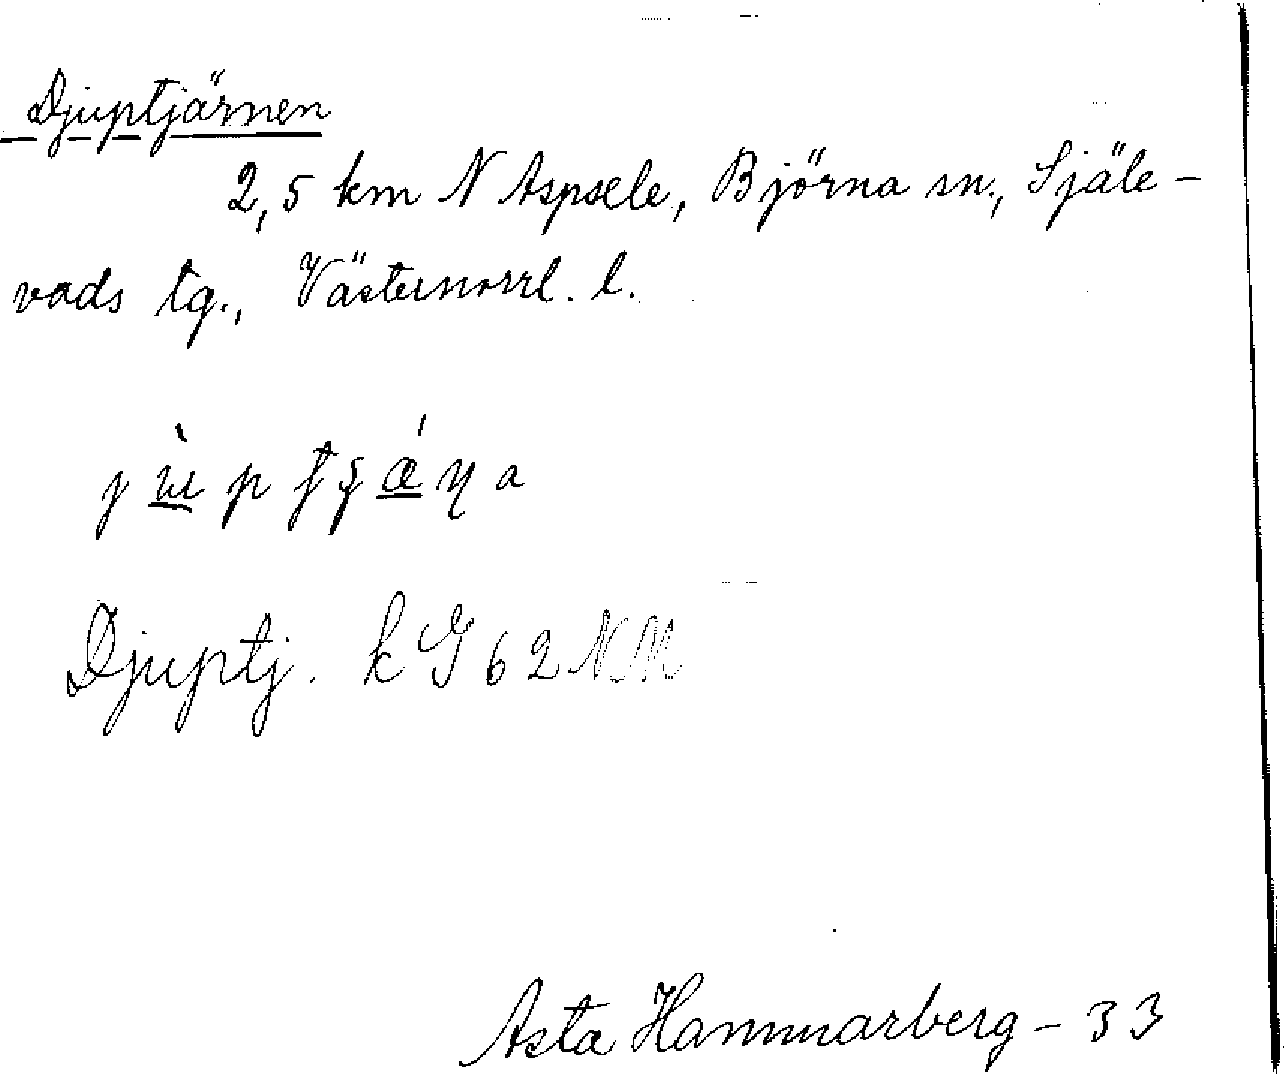 Djuptjärnen
2,5 km N Aspsele, Björna sn., Själe-
vads tg., Västernorrl. l.
Djuptj. k G 62 NM
Asta Hammarberg - 33